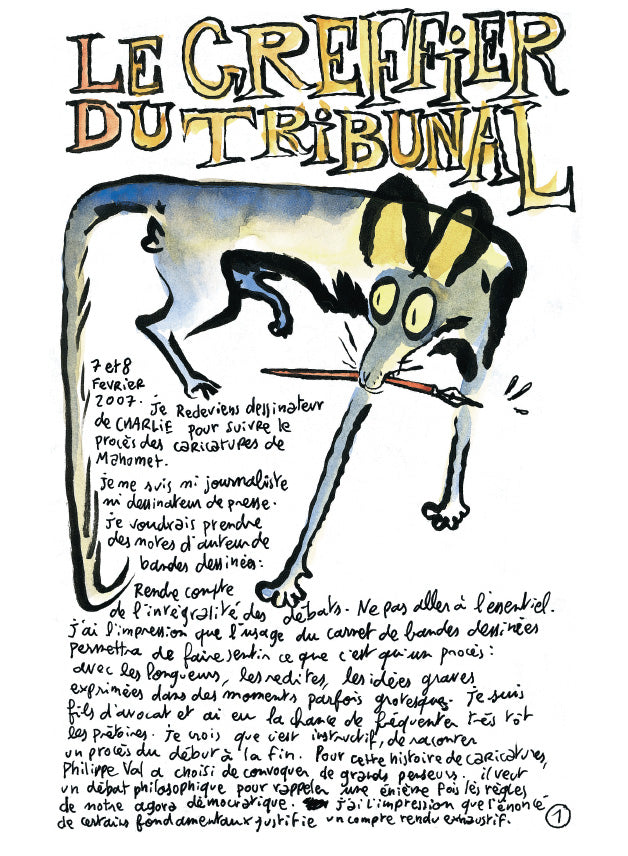 LE GREFFIER
DU TRIBUNAL
7 et 8
FEVRIER
2007. Je Redeviens dessinateur
de CHARLIE pour suivre le
procès des CARICATURES de
Mahomet.
Je me suis ni journaliste
ni dessinateur de presse.
Je voudrais prendre
des notes d'auteur de
bandes dessinées:
Rendre compte
de l'intégralité des débats. Ne pas aller à l'essentiel.
J'ai l'impression que l'usage du carnet de bandes dessinées
permettra de faire sentir ce que c'est qu'un procès:
avec les longueurs, les redites, les idées graves
exprimées dans des moments parfois grotesques. Je suis
fils d'avocat et ai eu la chance de fréquenter très tôt
les prétoires. Je crois que c'est instructif, de raconter
un procès du début à la fin. Pour cette histoire de CARICATURES,
Philippe Val a choisi de convoquer de grands penseurs. il veut
un débat philosophique pour rappeler une énième fois les règles
de notre agora démocratique. J'ai l'impression que l'énoncé
de certains fondamentaux justifie un compte rendu exhaustif.
1